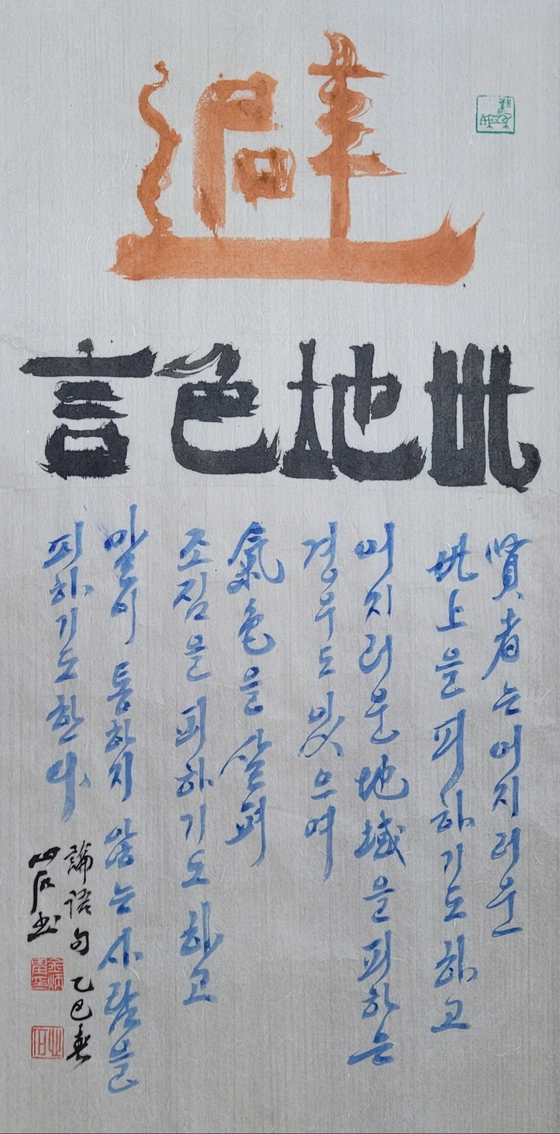 避
世地色言
賢者는 어지러운
世上을 피하기도 하고
어지러운 地域을 피하는
경우도 있으며
氣色을 살펴
조짐을 피하기도 하고
말이 통하지 않는 사람을
피하기도 한다
論語句 乙巳春
心石書